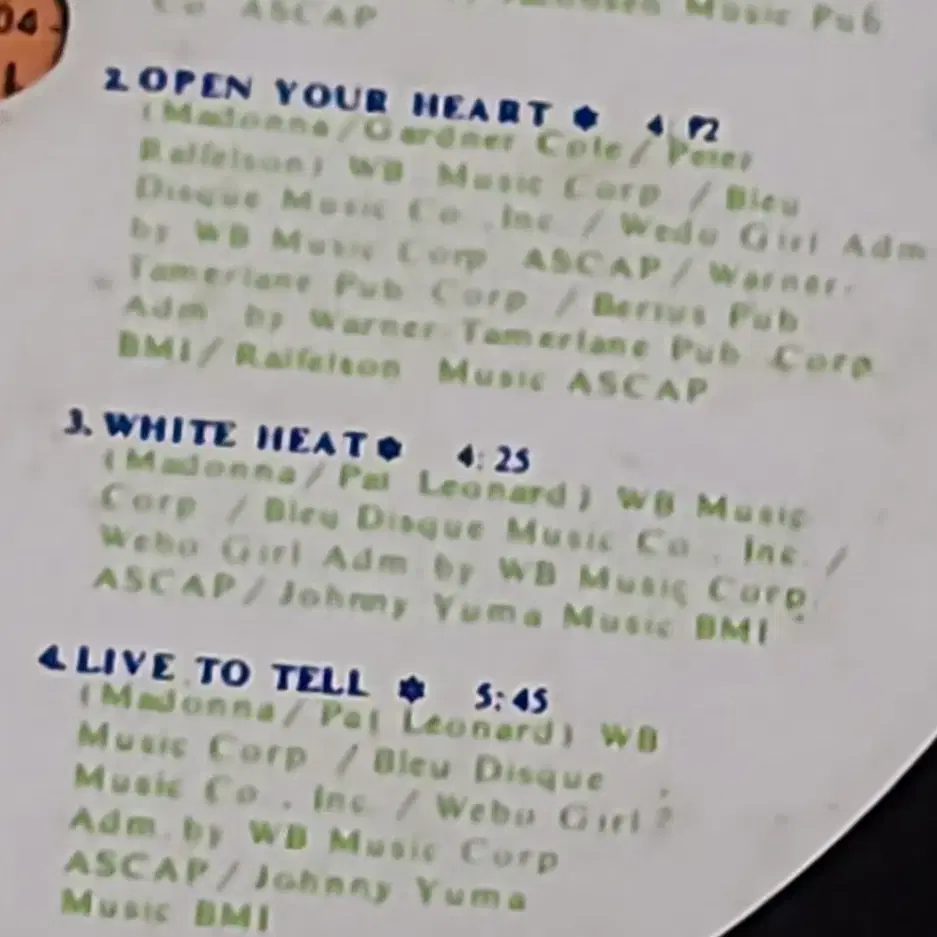 04
L
Co ASCAP
Music Pub
2. OPEN YOUR HEART 4:12
(Madonna/Gardner Cole/Peter
Ralfelson) WB Music Corp / Bleu
Disque Music Co., Inc / Webo Girl Adm
by WB Music Corp ASCAP/Warner-
Tamerlane Pub Corp / Berius Pub
Adm by Warner Tamerlane Pub Corp
BMI/Ralfelson Music ASCAP
3. WHITE HEAT 4:25
(Madonna/Pat Leonard) WB Music
Corp / Bleu Disque Music Co., Inc. /
Webo Girl Adm by WB Music Corp.
ASCAP/Johnny Yuma Music BMI
4. LIVE TO TELL 5:45
(Madonna/Pat Leonard) WB
Music Corp / Bleu Disque
Music Co., Inc / Webo Girl
Adm. by WB Music Corp
ASCAP/Johnny Yuma
Music BMI